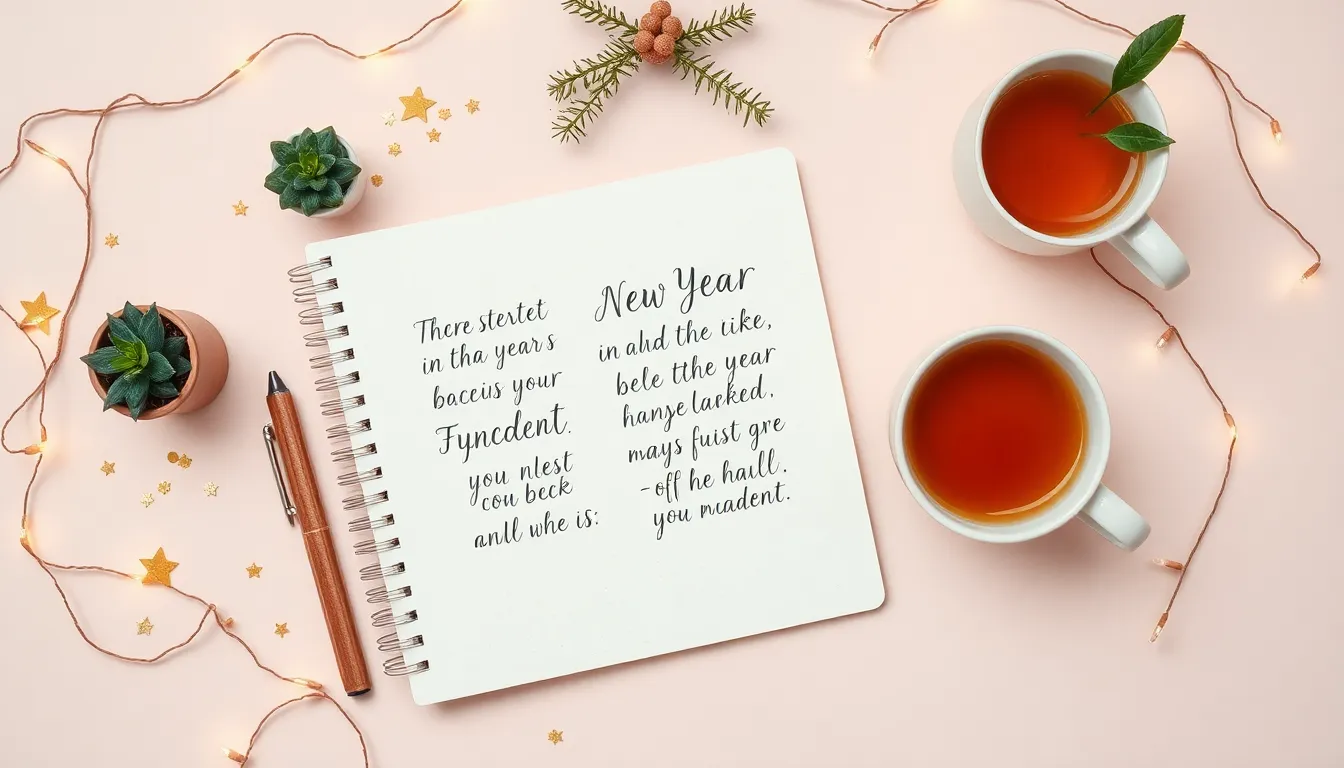 There stertet
in tha year s
baceis your
Fyncdent.
you nlest
cou beck
anll whe is:
New Year
in alıd the iike,
bele tthe year
hange larked,
mays fuist gre
-off he haıll.
you madent.